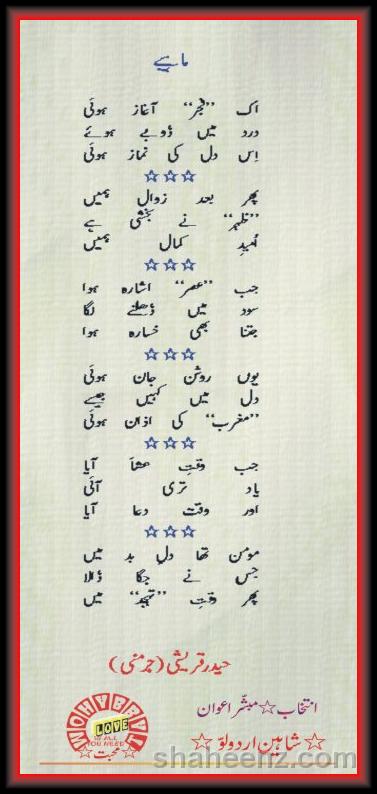 ماہیے
اک "فجر" آغاز ہوئی
درد میں ڈوبے ہوئے
اِس دل کی نماز ہوئی
☆☆☆
پھر بعد زوال ہمیں
"ظہر" نے بخشی ہے
اُمیدِ کمال ہمیں
☆☆☆
جب "عصر" اشارہ ہوا
سود میں ڈھلنے لگا
جتنا بھی خسارہ ہوا
☆☆☆
یوں روشن جان ہوئی
دل میں کہیں جیسے
"مغرب" کی اذان ہوئی
☆☆☆
جب وقتِ عشا آیا
یاد تری آئی
اور وقت دعا آیا
☆☆☆
مومن تھا دلِ بد میں
جس نے جگا ڈالا
پھر وقتِ "تہجد" میں
حیدر قریشی (جرمنی)
انتخاب ☆ مبشّر اعوان
☆ شاہین اردو لوّ ☆
LOVE
IS ALL
YOU NEED
☆ محبت ☆
shaheenz.com